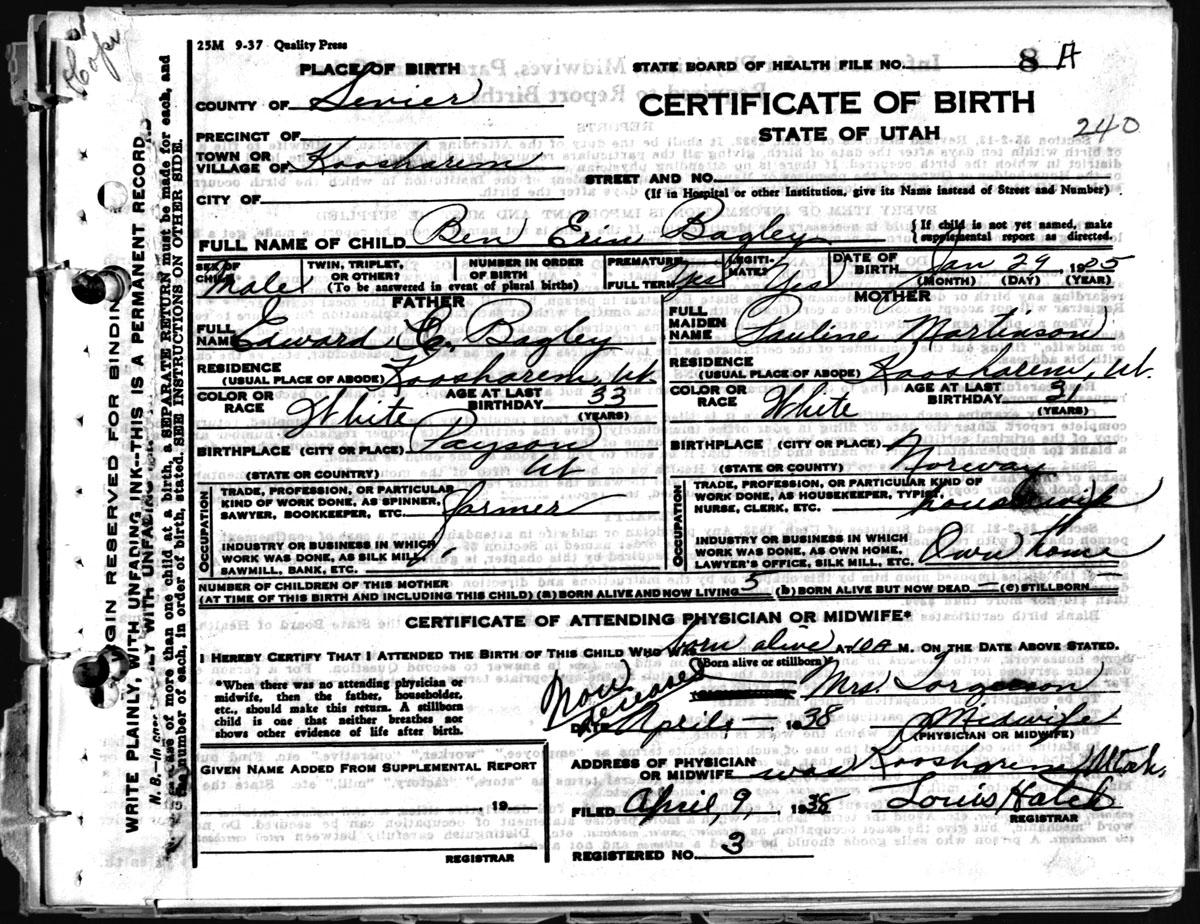 Copy
25M 9-37 Quality Press
PLACE OF BIRTH
STATE BOARD OF HEALTH FILE NO. 8 A
COUNTY OF Sevier
CERTIFICATE OF BIRTH
STATE OF UTAH
240
PRECINCT OF
TOWN OR VILLAGE OF Koosharem
STREET AND NO.
(If in Hospital or other Institution, give its Name instead of Street and Number)
CITY OF
FULL NAME OF CHILD Ben Erin Bagley
{ If child is not yet named, make supplemental report as directed.
SEX OF CHILD Male
TWIN, TRIPLET, OR OTHER?
NUMBER IN ORDER OF BIRTH
(To be answered in event of plural births)
PREMATURE
FULL TERM Yes
LEGITI-MATE? Yes
DATE OF BIRTH Jan 29 1925
(MONTH) (DAY) (YEAR)
FATHER
FULL NAME Edward E. Bagley
RESIDENCE (USUAL PLACE OF ABODE) Koosharem, Ut.
COLOR OR RACE White
AGE AT LAST BIRTHDAY 33 (YEARS)
BIRTHPLACE (CITY OR PLACE) Payson
(STATE OR COUNTRY) Ut
OCCUPATION
TRADE, PROFESSION, OR PARTICULAR KIND OF WORK DONE, AS SPINNER, SAWYER, BOOKKEEPER, ETC. farmer
INDUSTRY OR BUSINESS IN WHICH WORK WAS DONE, AS SILK MILL, SAWMILL, BANK, ETC.
MOTHER
FULL MAIDEN NAME Pauline
RESIDENCE (USUAL PLACE OF ABODE) Koosharem, Ut.
COLOR OR RACE White
AGE AT LAST BIRTHDAY 31 (YEARS)
BIRTHPLACE (CITY OR PLACE)
(STATE OR COUNTY) Norway
OCCUPATION
TRADE, PROFESSION, OR PARTICULAR KIND OF WORK DONE, AS HOUSEKEEPER, TYPIST, NURSE, CLERK, ETC. housewife
INDUSTRY OR BUSINESS IN WHICH WORK WAS DONE, AS OWN HOME, LAWYER'S OFFICE, SILK MILL, ETC. Own home
NUMBER OF CHILDREN OF THIS MOTHER
(AT TIME OF THIS BIRTH AND INCLUDING THIS CHILD) (a) BORN ALIVE AND NOW LIVING 5 (b) BORN ALIVE BUT NOW DEAD — (c) STILLBORN —
CERTIFICATE OF ATTENDING PHYSICIAN OR MIDWIFE*
I HEREBY CERTIFY THAT I ATTENDED THE BIRTH OF THIS CHILD WHO WAS born alive AT 10 A M. ON THE DATE ABOVE STATED.
(Born alive or stillborn)
*When there was no attending physician or
midwife, then the father, householder,
etc., should make this return. A stillborn
child is one that neither breathes nor
shows other evidence of life after birth.
Now deceased
Mrs. Torgerson
DATE April — 1938
Midwife
(PHYSICIAN OR MIDWIFE)
GIVEN NAME ADDED FROM SUPPLEMENTAL REPORT
19
REGISTRAR
ADDRESS OF PHYSICIAN OR MIDWIFE was Koosharem, Utah.
FILED April, 9, 1938
Louis Hatch
REGISTRAR
REGISTERED NO. 3
MARGIN RESERVED FOR BINDING
WRITE PLAINLY, WITH UNFADING INK--THIS IS A PERMANENT RECORD
N. B.--In case of more than one child at a birth, a SEPARATE RETURN must be made for each, and
the number of each, in order of birth, stated. SEE INSTRUCTIONS ON OTHER SIDE.